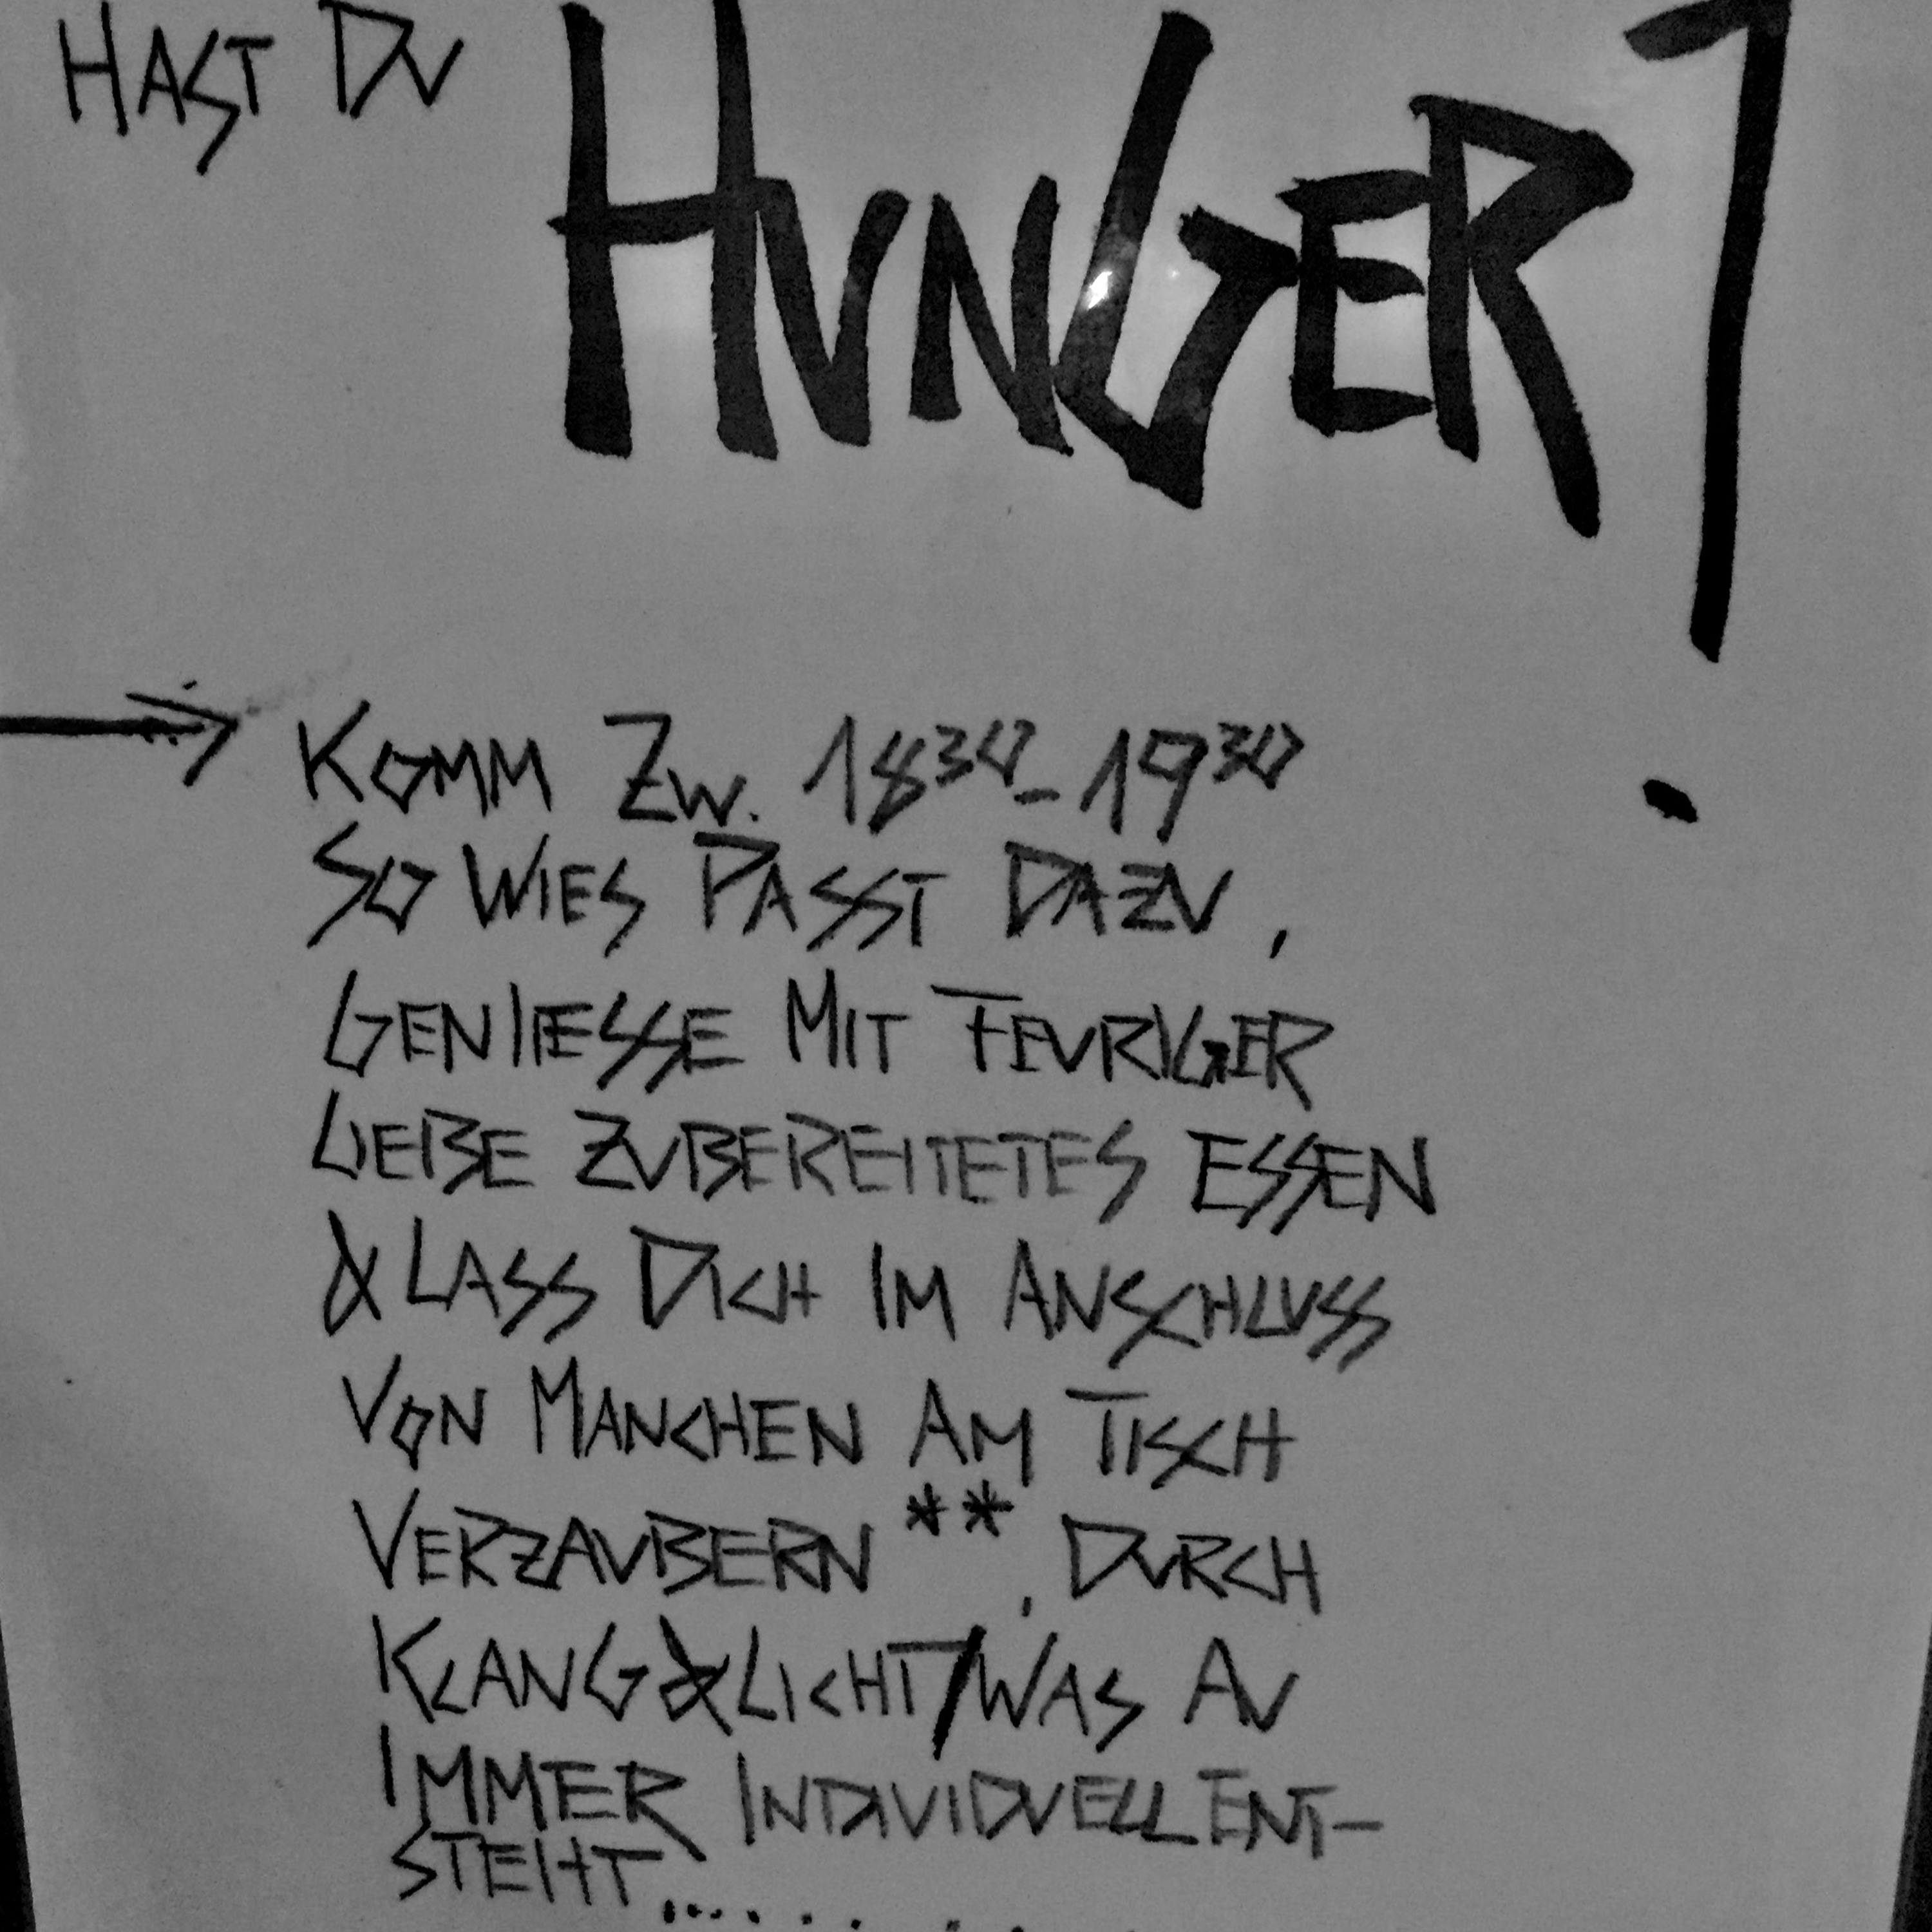 HAST DU HUNGER?
→ KOMM ZW. 18³⁰-19³⁰
SO WIES PASST DAZU,
GENIESSE MIT FEURIGER
LIEBE ZUBEREITETES ESSEN
& LASS DICH IM ANSCHLUSS
VON MANCHEN AM TISCH
VERZAUBERN**, DURCH
KLANG&LICHT/WAS AU
IMMER INDIVIDUELL ENT-
STEHT........